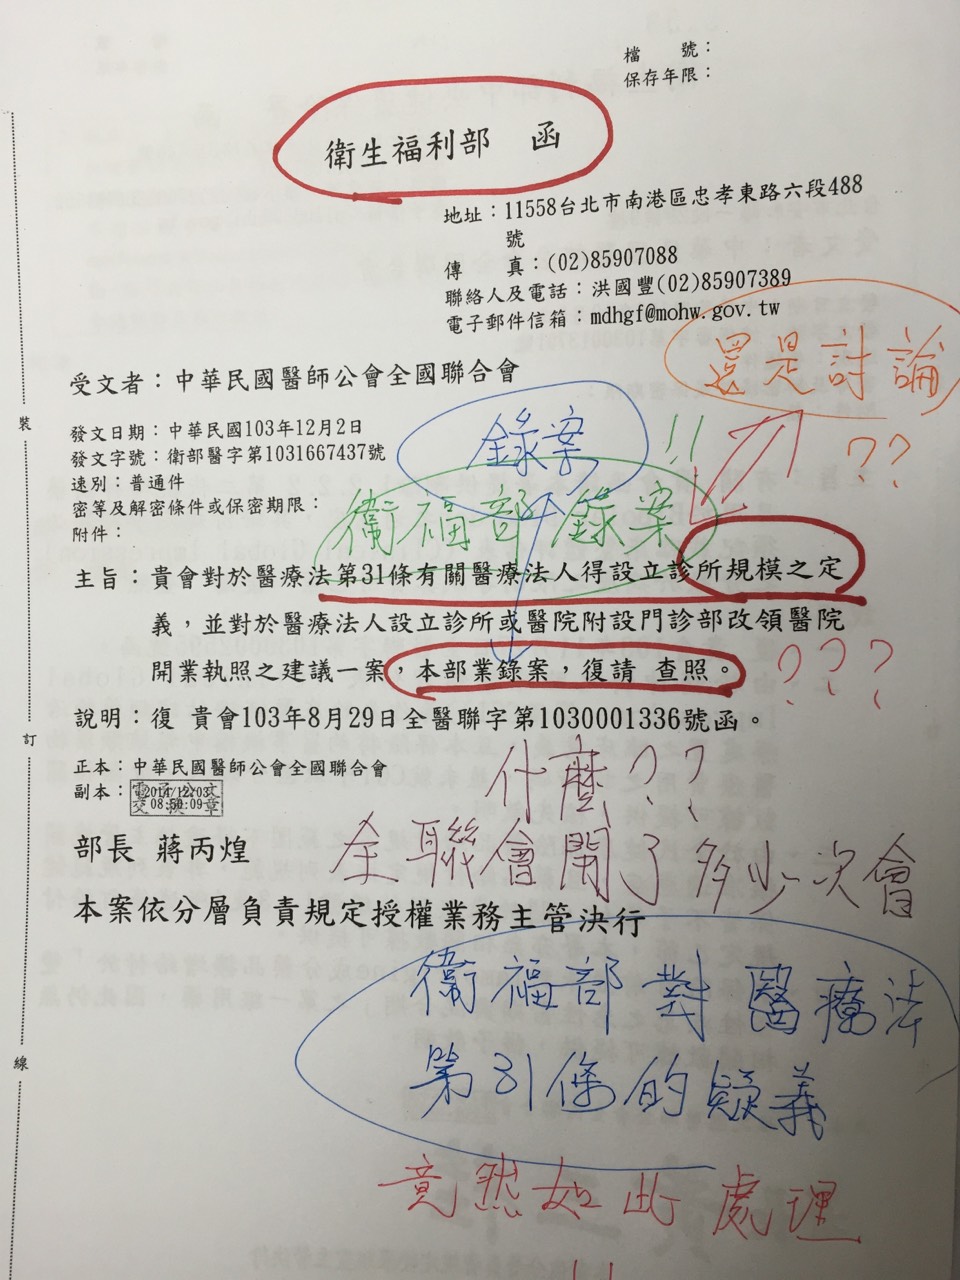 檔　　號：
保存年限：
衛生福利部　函
地址：11558台北市南港區忠孝東路六段488
號
傳　　真：(02)85907088
聯絡人及電話：洪國豐(02)85907389
電子郵件信箱：mdhgf@mohw.gov.tw
還是討論
??
受文者：中華民國醫師公會全國聯合會
發文日期：中華民國103年12月2日
發文字號：衛部醫字第1031667437號
速別：普通件
密等及解密條件或保密期限：
附件：
錄案
!!
衛福部錄案
主旨：貴會對於醫療法第31條有關醫療法人得設立診所規模之定
義，並對於醫療法人設立診所或醫院附設門診部改領醫院
開業執照之建議一案，本部業錄案，復請 查照。
???
說明：復 貴會103年8月29日全醫聯字第1030001336號函。
正本：中華民國醫師公會全國聯合會
副本：
電子公文
2014/12/03
08:50:09
交換章
什麼??
全聯會開了多少次會
部長 蔣丙煌
本案依分層負責規定授權業務主管決行
衛福部對醫療法
第31條的疑義
竟然如此處理
!!
裝
訂
線